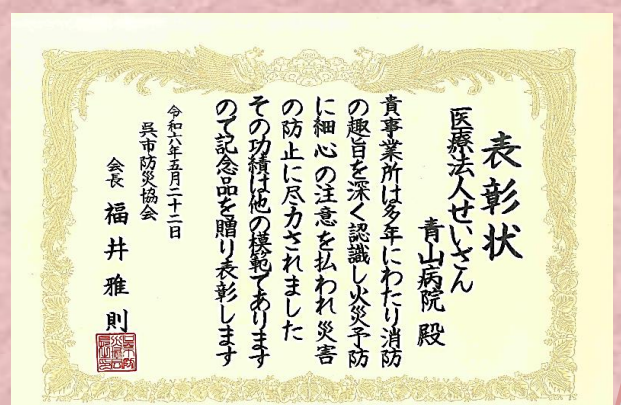 表彰状
医療法人せいざん
青山病院 殿
貴事業所は多年にわたり消防
の趣旨を深く認識し火災予防
に細心の注意を払われ災害
の防止に尽力されました
その功績は他の模範であります
ので記念品を贈り表彰します
令和六年五月二十二日
呉市防災協会
会長 福井雅則